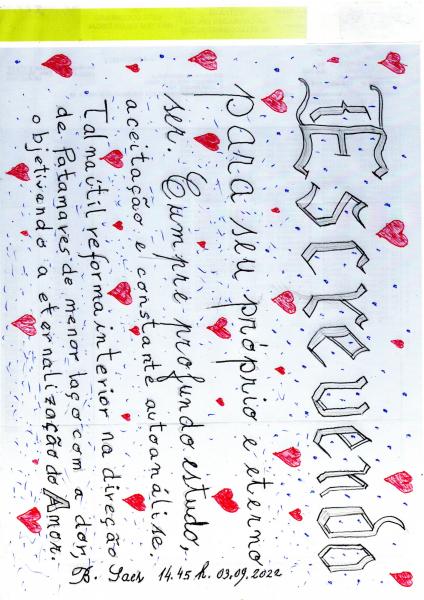 Escrevendo
para seu próprio e eterno
ser. Cumpre profundo estudo,
aceitação e constante autoanálise.
Tal naitil reforma interior na direção
de Patamares de menor laço com a dor,
objetivendo a eternalização do Amor.
B. Saes 14.45 h. 03.09.2022